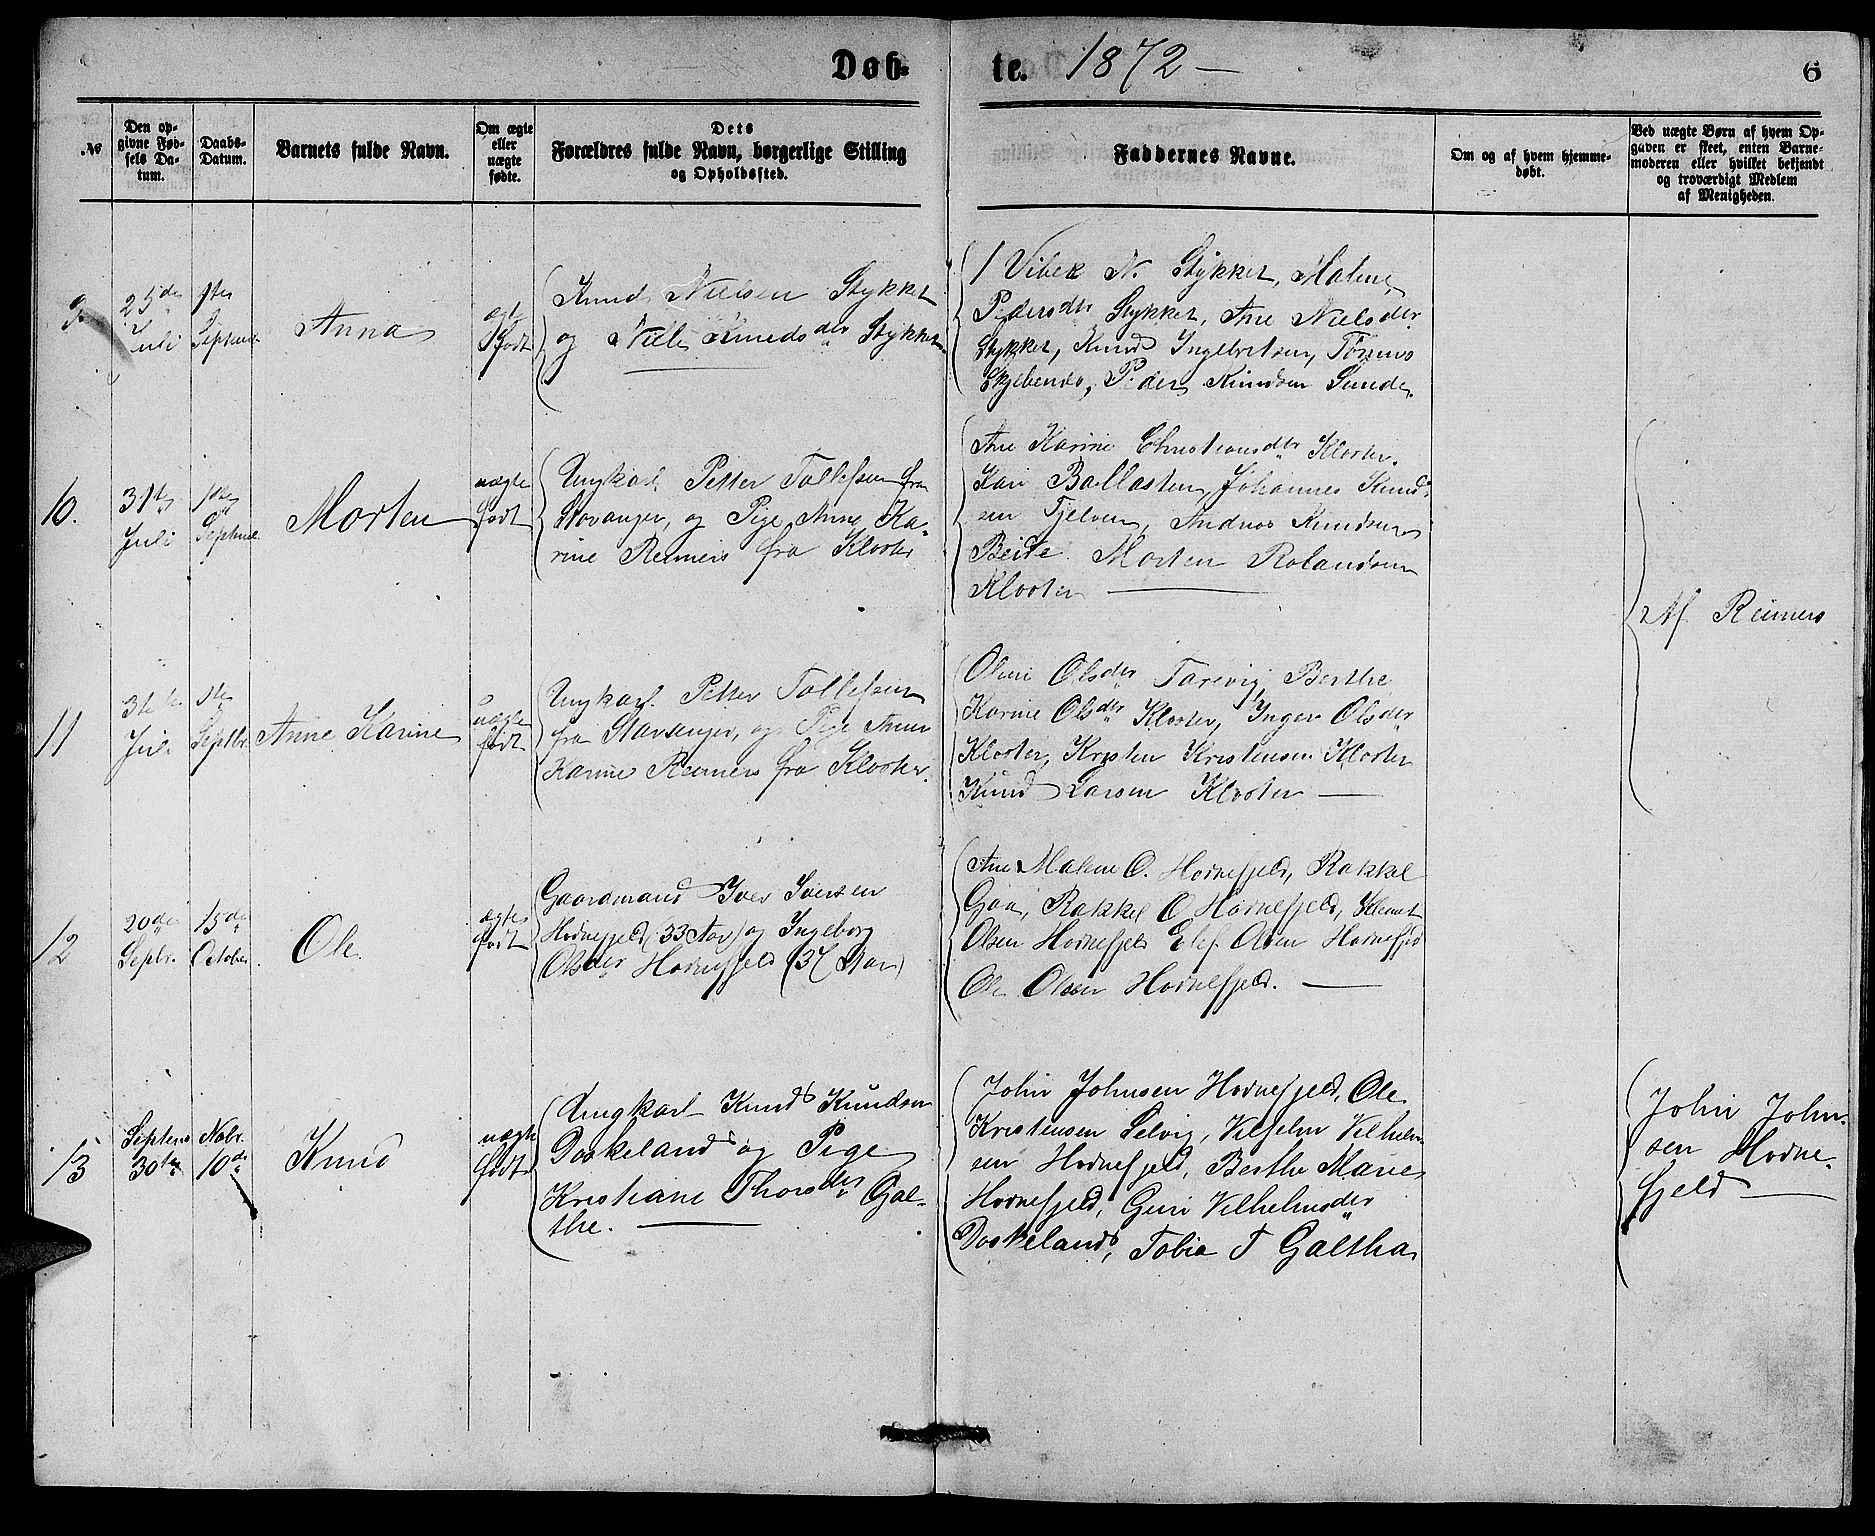 Døb-
te. 1872 —
6
№
Den op-
givne Fød-
sels Da-
tum.
Daabs-
Datum.
Barnets fulde Navn.
Om ægte
eller
uægte
fødte.
Dets
Forældres fulde Navn, borgerlige Stilling
og Opholdssted.
Faddernes Navne.
Om og af hvem hjemme-
døbt.
Ved uægte Børn af hvem Op-
gaven er skeet, enten Barne-
moderen eller hvilket bekjendt
og troværdigt Medlem
af Menigheden.
9
25de
Juli
1ste
Septmbr
Anna
ægte
født
Knud Nielsen Stykket
og Knudsdtr Stykket
Vibek N. Stykket, Malene
Pedersdtr Stykket, Ane Nielsdtr
Stykket, Knud Ingebretsen,
Peder Knudsen Sunde
10.
31te
Juli
1ste
Septmbr
Morten
uægte
født
Ungkarl Petter Tollefsen fra
Stavanger, og Pige Anne Ka-
rine Reimers fra Kloster
Ane Karine Christiansdtr Kloster.
Kari Ballasten, Johannes Knud-
sen Tjelven, Andreas Knudsen
Beite. Morten Rolandsen
Kloster —
Af Reimers
11
31te
Juli
1ste
Septbr.
Anne Karine
uægte
født
Ungkarl. Petter Tollefsen
fra Stavanger, og Pige Anne
Karine Reimers fra Kloster.
Olene Olsdtr Tarevig, Berthe
Karine Olsdtr Kloster, Inger Olsdtr
Kloster, Kristen Kristensen Kloster
Knud Larsen Kloster —
12
20de
Septbr.
15de
October
Ole
ægte
født
Gaardmand Iver Iversen
Hodnefjeld (33 Aar) og Ingeborg
Olsdtr Hodnefjeld (37 Aar)
Ane Malene O. Hodnefjeld, Rakkel
Gaa, Rakkel O Hodnefjeld, Klemet
Olsen Hodnefjeld Elef Olsen Hodnefjeld
Ole Olsen Hodnefjeld. —
13
Septemb
30te
Nobr.
10de
Knud
uægte
født
Ungkarl Knud Knudsen
Daskeland og Pige
Kristiane Thorsdtr Gal-
the. —
John Johnsen Hodnefjeld, Ole
Kristensen Selvig, Vilhelm Vilhelm-
sen Hodnefjeld, Berthe Marie
Hodnefjeld, Guri Vilhelmsdtr
Daskeland, Tobia T Galtha
John John-
sen Hodne-
fjeld —